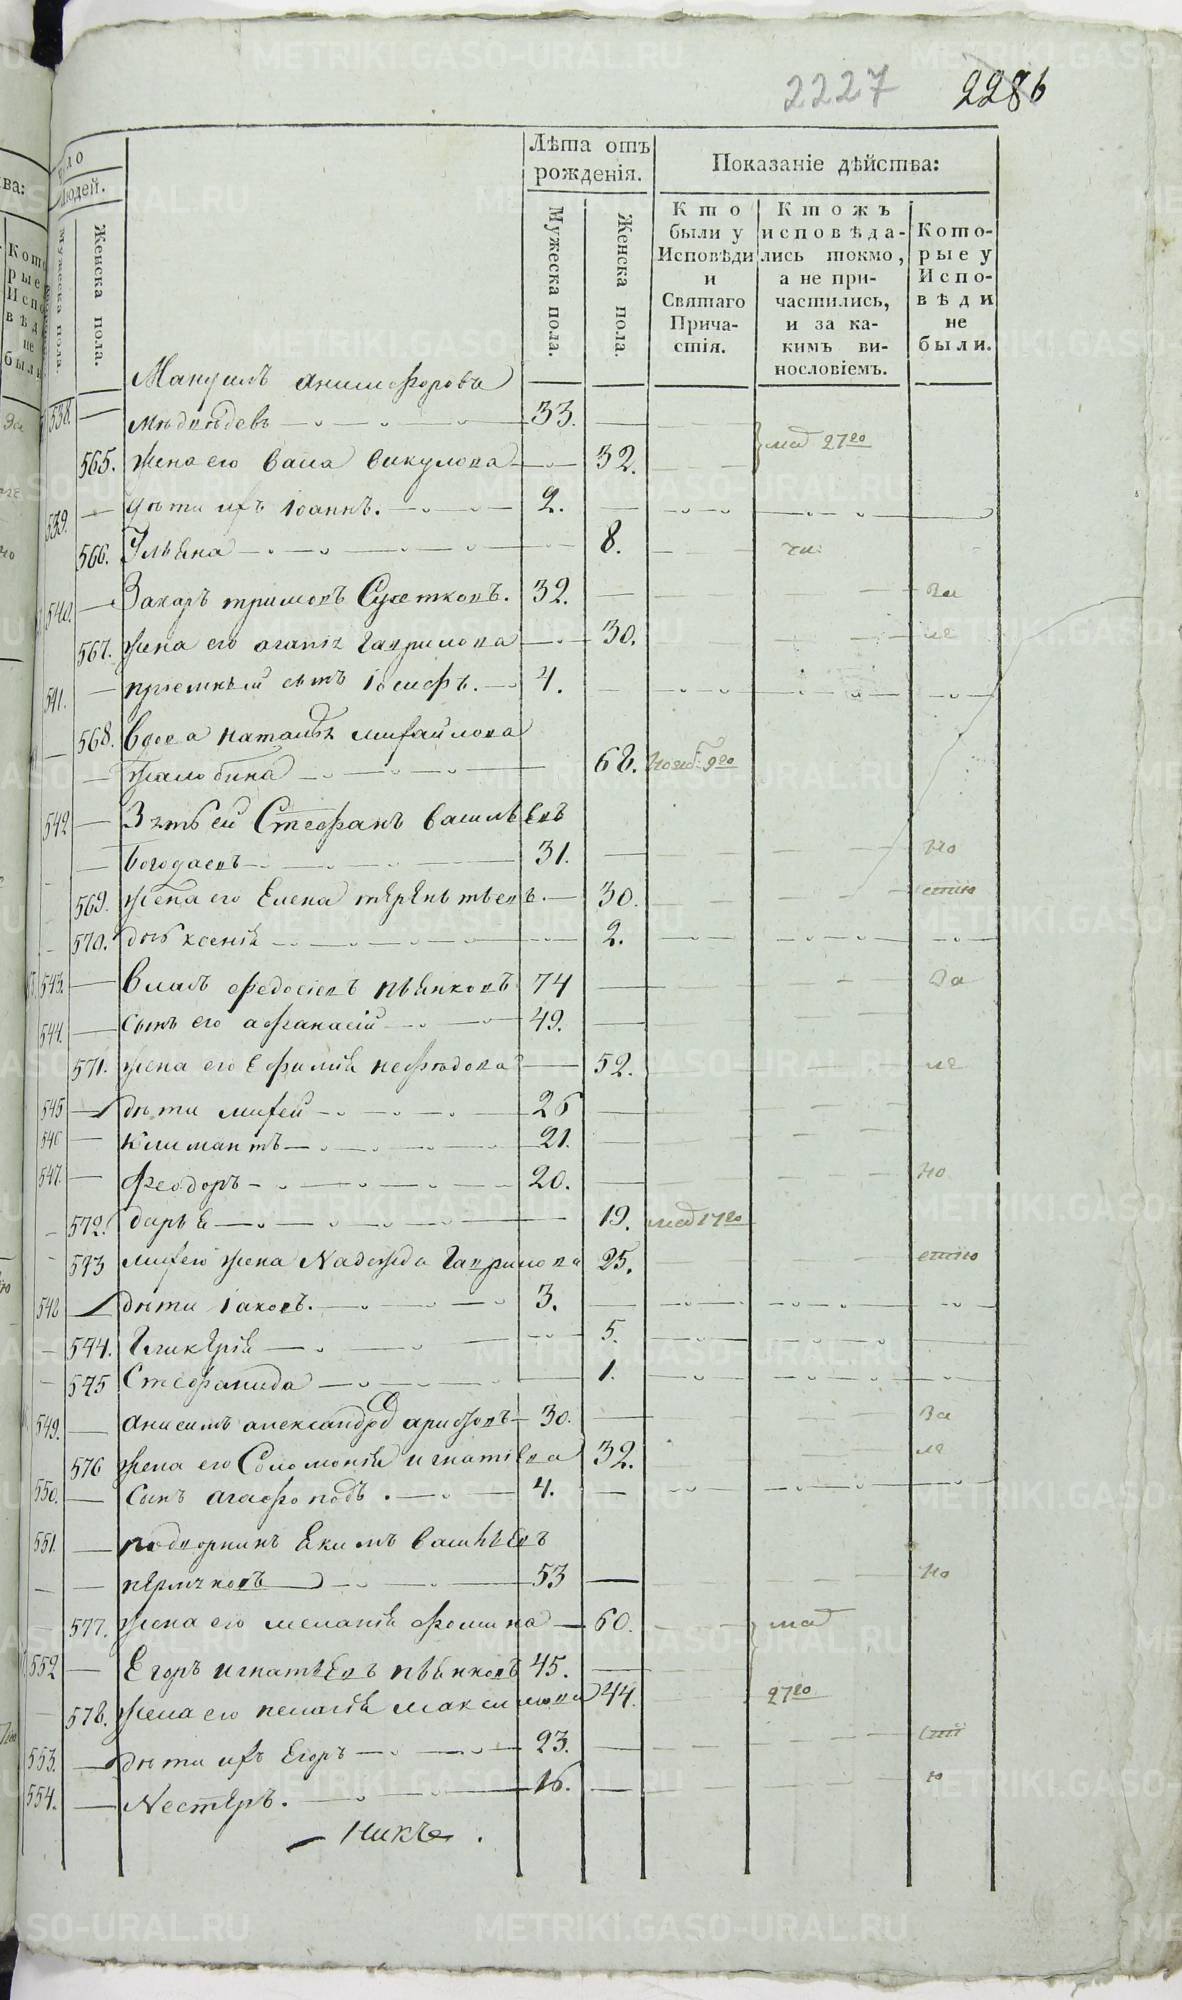 2227 2286
Число людей.
Мужеска пола.
Женска пола.
Лѣта отъ рожденія.
Мужеска пола.
Женска пола.
Показаніе дѣйства:
Кто были у Исповѣди и Святаго Причастія.
Ктожъ исповѣдались токмо, а не причастились, и за какимъ винословіемъ.
Которые у Исповѣди не были.
538. — Мануилъ
мѣдвѣдевъ 33.
565. жена его Васа викулова 32. мад 27го
539. — дѣти ихъ Іоаннъ. 2.
566. Ульяна 8.
540. — Захаръ 32. За
567. жена его агапія Гаврилова 30. ле
541. — приемный сынъ Іосифъ. 4.
568. Вдова наталья михайлова
68. нояб 9го
542 — Зять ей Стефанъ василѣевъ
Богодаевъ 31. но
569. жена его Елена 30. стію
570. дочь ксенія 2.
543. — Власъ федосіевъ пьянковъ 74 За
544. — сынъ его афанасій 49.
571. жена его Ефимія нефедова 52. ле
545 — дѣти михей 26
546 — климантъ 21.
547. — Феодоръ 20. но
572. дарья 19. мад 17го
573 михею жена Надежда Гаврилова 25. стію
548 — дѣти Іаковъ. 3.
574. Гликерія 5.
575 Стефанида 1.
549. — анисимъ 30. За
576 жена его Соломонія игнатіева 32. ле
550. — сынъ агафоподъ. 4.
551. — подворникъ Екимъ василѣевъ
53 но
577. жена его меланія фомина 60. мад
552 — Егоръ игнатьевъ пьянковъ 45.
578. жена его пелагія максимова 44. 27го
553. — дѣти ихъ Егоръ 23.
554. — Нестеръ. 16. ю
METRIKI.GASO-URAL.RU